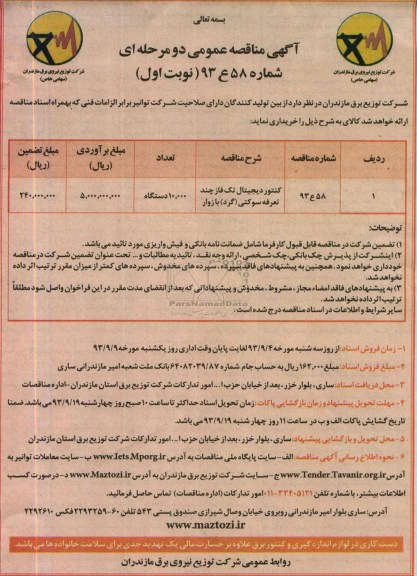 بسمه تعالی
آگهی مناقصه عمومی دو مرحله ای
شماره ۵۸ ع ۹۳ (نوبت اول)
شرکت توزیع نیروی برق مازندران
(سهامی خاص)
شرکت توزیع نیروی برق مازندران
(سهامی خاص)
شرکت توزیع برق مازندران در نظر دارد از بین تولید کنندگان دارای صلاحیت شرکت توانیر برابر الزامات فنی که بهمراه اسناد مناقصه
ارائه خواهد شد کالای به شرح ذیل را خریداری نماید:
ردیف شماره مناقصه شرح مناقصه تعداد مبلغ برآوردی (ریال) مبلغ تضمین (ریال)
۱ ۵۸ ع ۹۳ کنتور دیجیتال تک فاز چند تعرفه سوکتی (گرد) با زوار ۱۰,۰۰۰ دستگاه ۵,۰۰۰,۰۰۰,۰۰۰ ۲۴۰,۰۰۰,۰۰۰
توضیحات:
۱) تضمین شرکت در مناقصه قابل قبول کارفرما شامل ضمانت نامه بانکی و فیش واریزی مورد تائید می باشد.
۲) اینشرکت از پذیرش چک بانکی، چک شخصی، ارائه وجه نقد، تائیدیه مطالبات و... تحت عنوان تضمین شرکت در مناقصه
خودداری خواهد نمود. همچنین به پیشنهادهای فاقد سپرده، سپرده های مخدوش، سپرده های کمتر از میزان مقرر ترتیب اثر داده
نخواهد شد.
۳) به پیشنهادهای فاقد امضاء مجاز، مشروط، مخدوش و پیشنهاداتی که بعد از انقضای مدت مقرر در این فراخوان واصل شود مطلقاً
ترتیب اثر داده نخواهد شد.
سایر شرایط و اطلاعات در اسناد مناقصه درج شده است.
ParsNamadData
۱- زمان فروش اسناد: از روز سه شنبه مورخه ۹۳/۹/۴ لغایت پایان وقت اداری روز یکشنبه مورخه ۹۳/۹/۹
۲- مبلغ فروش اسناد: مبلغ ۱۶۲,۰۰۰ ریال به حساب جام شماره ۶۴۰۸۲۰۳۹/۸۷ بانک ملت شعبه امیر مازندرانی ساری
۳- محل دریافت اسناد: ساری، بلوار خزر، بعد از خیابان حزب ا...، امور تدارکات شرکت توزیع برق استان مازندران-اداره مناقصات
۴- مهلت تحویل پیشنهاد و زمان بازگشایی پاکات: زمان تحویل اسناد حداکثر تا ساعت ۱۰ صبح روز چهارشنبه ۹۳/۹/۱۹ می باشد. ضمنا
تاریخ گشایش پاکات الف و ب در ساعت ۱۱ روز چهار شنبه ۹۳/۹/۱۹ می باشد.
۵- محل تحویل و بازگشایی پیشنهاد: ساری، بلوار خزر، بعد از خیابان حزب ا...، امور تدارکات شرکت توزیع برق استان مازندران
۶- نحوه اطلاع رسانی آگهی مناقصه: الف- سایت پایگاه ملی مناقصات به آدرس www.Iets.Mporg.ir ب- سایت معاملات توانیر به
آدرس www.Tender.Tavanir.org.ir ج- سایت شرکت توزیع برق مازندران به آدرس www.Maztozi.ir د- در صورت کسب
اطلاعات بیشتر، با شماره تلفن ۳۳۴۰۵۱۳۱-۰۱۱ امور تدارکات (اداره مناقصات) تماس حاصل فرمائید.
آدرس: ساری بلوار امیر مازندرانی روبروی خیابان وصال شیرازی صندوق پستی ۵۴۳ تلفن ۶۰-۲۲۹۳۲۵۹ فکس ۲۲۹۲۶۱۰
www.maztozi.ir
دست کاری در لوازم اندازه گیری و کنتور برق علاوه بر خسارت مالی یک تهدید جدی برای سلامت خانواده ها می باشد
روابط عمومی شرکت توزیع نیروی برق مازندران